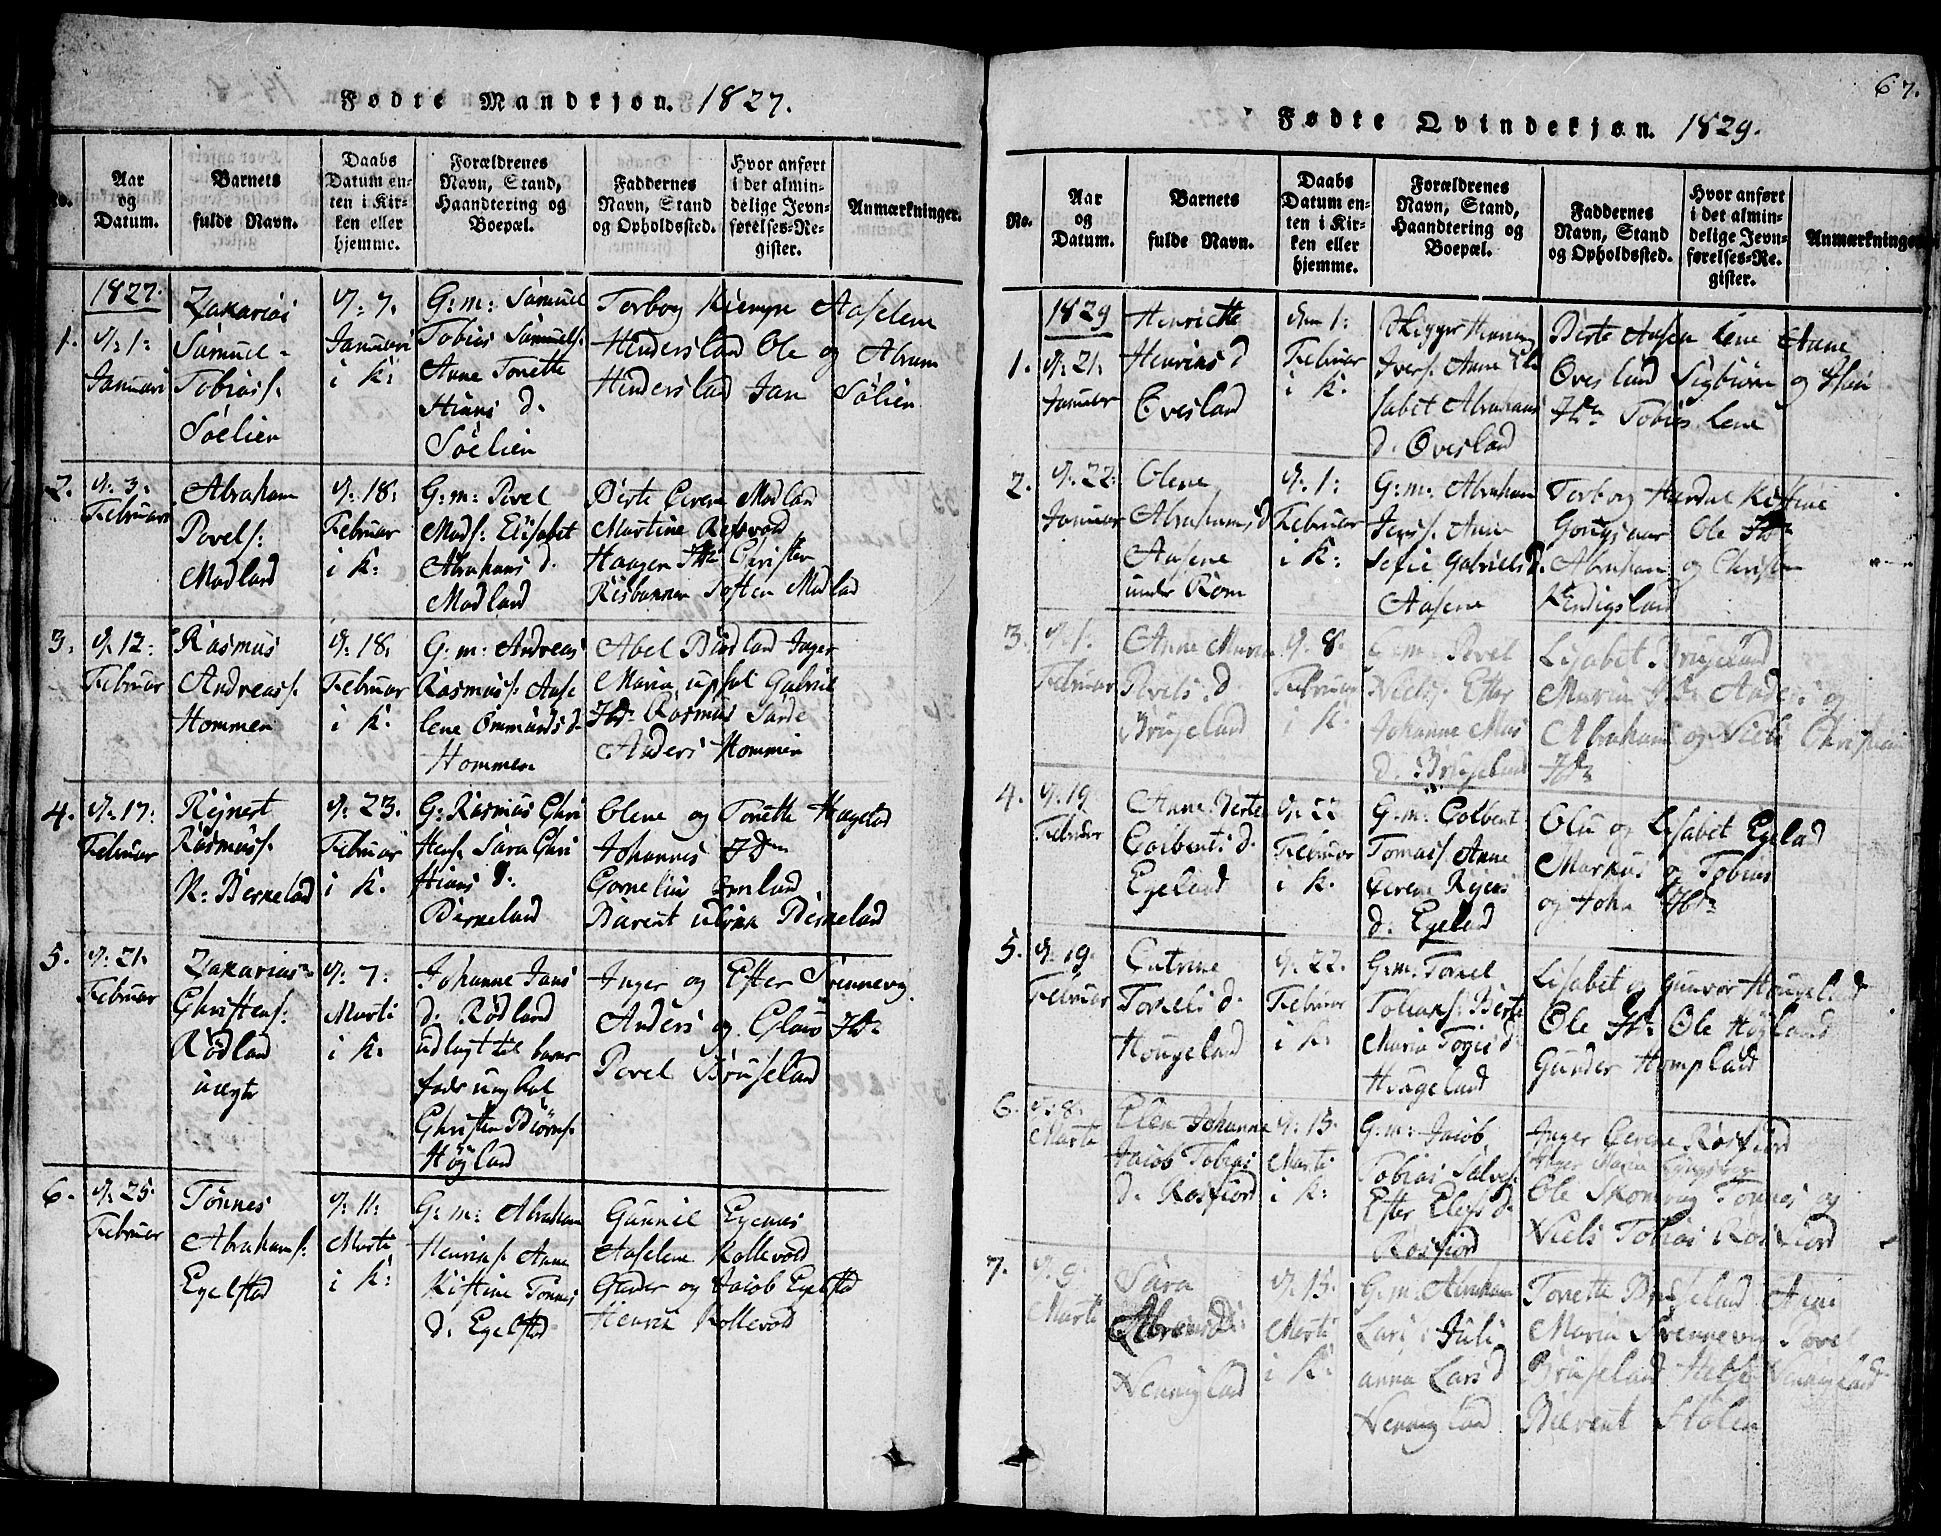 Fødte Mandkjøn. 1827.
No.
Aar
og
Datum.
Barnets
fulde Navn.
Daabs
Datum en-
ten i Kir-
ken eller
hjemme.
Forældrenes
Navn, Stand,
Haandtering og
Boepæl.
Faddernes
Navn, Stand
og Opholdssted.
Hvor anført
i det almin-
delige Jevn-
førelses-Re-
gister.
Anmærkninger.
1827.
1.
d: 1:
Januari
Zakarias
Samuel
Tobiass:
Söelien
d: 7.
Januari
i K:
G: m: Samuel
Tobias Samuels:
Anne Tonette
Stians d.
Söelien
Torborg Kiempe Aaselene
Hindersland Ole og Abram
Hindersland Jan Sölien
2.
d: 3:
Februari
Abraham
Povels:
Modland
d: 18:
Februar
i K:
G: m: Povel
Mads: Elisabet
Abrahams d.
Modland
Birte Cerene Modland
Martine Refsvold
Haagen Ibm Christen
Risbannen Tosten Modland
3.
d: 12:
Februar
Rasmus
Andreass.
Hommen
d: 18.
Februar
i K:
G: m: Andreas
Rasmuss: Aase
lene Ommunds d.
Hommen
Abel Bordland Inger
Maria upsal Gabriel
Ibm Rasmus Sande
Anders Hommen
4.
d: 17:
Februar
Rejnert
Rasmuss.
K: Berneland
d: 23.
Februar
i K.
G: Rasmus Chri
stens. Sara Chri
stians d.
Berneland
Olene og Tonette Hageland
Johannes Ibm
Cornelius Omland
Barent Berneland
5.
d: 21.
Februar
Zakarias
Christens:
Rödland
uegte
d: 7.
Marti
i K.
Johanne Jans
d. Rödland
udlagt til barne
fader ungkal
Christen Biörns.
Högland
Inger og Ester Svennevig
Anders og Claus Ibm
Povel Bruseland
6.
d: 25.
Februar
Tönnes
Abrahams:
Egelstad
d: 11.
Marti
i K:
G: m: Abraham
Henriks. Anne
Kistine Tönnes
d. Egelstad
Gunnil Egenes
Aaselene Kollevold
Gunder og Jacob Egelstad
Henrik Kollevold
67.
Fødte Qvindekjøn. 1829.
No.
Aar
og
Datum.
Barnets
fulde Navn.
Daabs
Datum en-
ten i Kir-
ken eller
hjemme.
Forældrenes
Navn, Stand,
Haandtering og
Boepæl.
Faddernes
Navn, Stand
og Opholdssted.
Hvor anført
i det almin-
delige Jevn-
førelses-Re-
gister.
Anmærkninger
1829
1.
d: 21.
Januar
Henriette
Henriks d
Övesland
den 1:
Februar
i K:
Henning
Ivers. Anne Eli
sabet Abrahams
d. Övesland
Birte Aasen Lene Anne
Övesland Sigbiörn og
Ibm Tobias Lene
2.
d: 22:
Januar
Olene
Abrahams d
Aasene
under Rom
d: 1:
Februar
i K:
G: m: Abraham
Jens. Anne
Sefie Gabriels d.
Aasene
Torborg Hærdal Kistine
Ole Ibm
Abraham og Christen
Kendigsland
3.
d: 1.
Februar
Anne Maria
Povels d.
Bruseland
d: 8.
Februar
i K:
G: m: Povel
Niels. Ester
Johanne Mas
d. Bruseland
Lisabet Bruseland
Maria Ibm Anders og
Abraham og Niels Christian
Ibm
4.
d. 19
Februar
Anne Berte
Colbents d.
Egeland
d: 22
Februar
i K.
G: m: Colbent
Tomas. Anne
Cerene Rejers
d. Egeland
Olu og Lisabet Egeland
Markus og Tobias
og John Ibm
5.
d. 19.
Februar
Catrine
Torrels d.
Hougeland
d: 22.
Februar
i K.
G: m: Torrel
Tollaks: Berte
Maria Torjes d
Hougeland
Lisabet og Gunvor Hougeland
Ole Ibm Ole Högland
Gunder Hompland
6.
d: 8.
Marti
Elen Johanne
Jacob Tobias
d. Rosfiord
d. 15.
Marti
i K:
G: m: Jacob
Tobias Salves.
Ester Elefs d.
Rosfiord
Inger Cerene Rosfiord
Inger Maria
Ole Skomrag Tönnes og
Niels Tobias Rosfiord
7.
d. 9.
Marti
Sara
Abrams d:
Nennigland
d: 15.
Marti
i K:
G: m: Abraham
Lars: Juli
anna Lars d
Nennigland
Tonette Bruseland Ane
Maria Svennevig Povel
Bruseland Nennigland
Berent Stölen